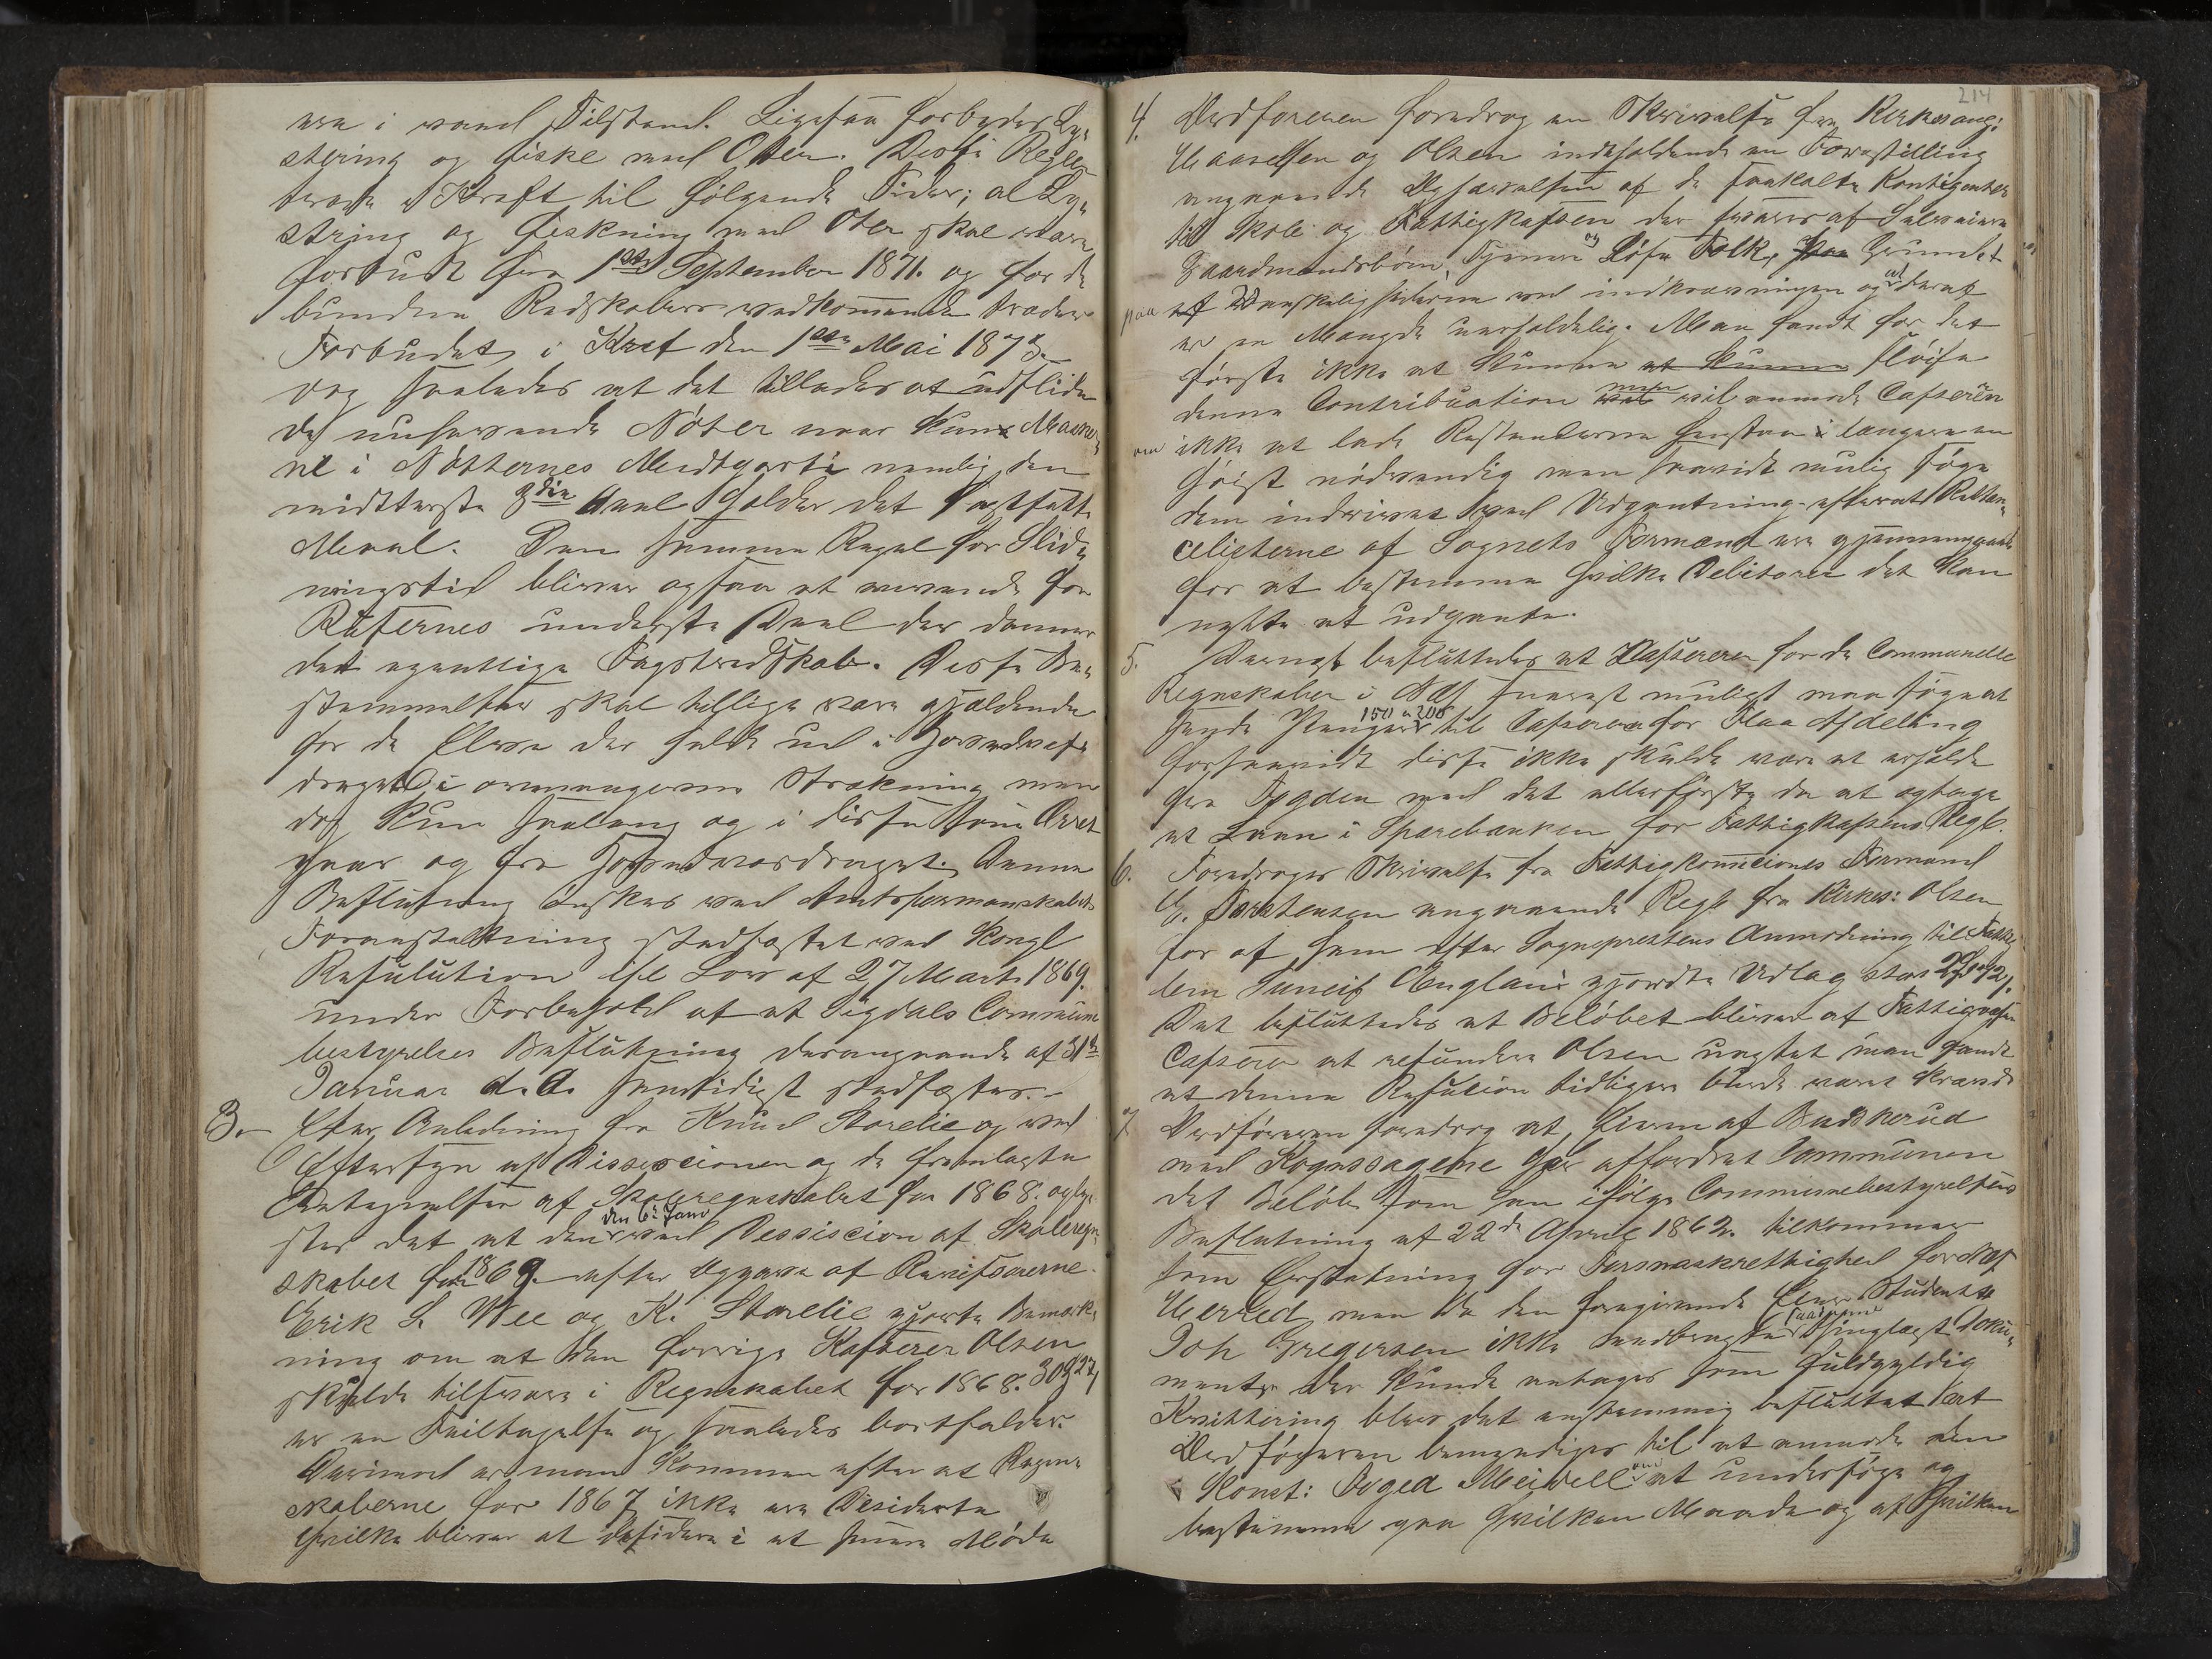 ere i vaad Tilstand. Ligesaa forbydes Ly-
string og fiske med Otter. Disse Regler
træde i Kraft til følgende Tider; al Ly-
string og Fiskning med Oter skal være
forbudt fra 1ste September 1871. og for de
bundne Redskabers vedkommende træder
Forbudet i Kraft den 1ste Mai 1873.
dog saaledes at det tillades at udslide
de nuhavende Nóter naar kun Masker-
ne i Nótternes Midtparti nemlig den
midtterste 3die Deel holder det fastsatte
Maal. Den samme Regel for Slid-
ningstid bliver ogsaa at anvende for
Rusernes underste Deel der danner
det egentlige Fangstredskab. Disse Be-
stemmelser skal tillige være gjældende
for de Elve der falde ud i
draget i Strækning men
dog kun saalangt og i disse som Ørret
gaar og fra. Denne
Beslutning ønskes ved Amtsformandskabets
Foranstaltning stadfæstet ved Kongl
Resulution ifl Lov af 27 Marts 1869.
under Forbehold af at Sigdals Commune
bestyrelses Beslutning desangaaende af 31te
Januar d. A. samtidigt stadfæstes.-
3.- Efter Anledning fra Knud Storelie og ved
Eftersyn af Dissescionen og de fremlagte
Antegnelser af Skoleregnskabet for 1868. oply-
stes det at den den 6te Janr ved Dessiscion af Skoleregn-
skabet for 1869. efter Opgave af Revisorerne
Erik L. Wee og K. Storelie gjorte Bemærk-
ning om at den forrige Kasserer Olsen
skulde tilsvare i Regnskabet for 1868. 30 27
er en Feiltagelse og saaledes bortfalder.
Derimod er man kommen efter at Regn-
skaberne for 1867 ikke ere Desiderte
hvilke bliver at desidere i et senere Móde
214
4. Ordforeren foredrog en Skrivelse fra Kirkesang:
Haavelsen og Olsen indeholdende en Forestilling
angaaende Ophævelsen af de saakaldte Kontigenter
til Skole og Fattigkassen der svares af Selveiere
Gaardmandsbórn, Tjenere og Lóse Folk, paa Grund
paa af Vanskelighederne ved indkrævningen og at deraf
er en Mængde uerholdelig. Man fandt for det
fórste ikke at kunne at kunne slóife
denne Contribuation men vil anmode Casseren
om ikke at lade Restanserne henstaa i længere en
hóist nódvendig men saavidt mulig sóge
dem inddrevet ved Udpantning efterat Restan-
celisterne af Sognets Formænd ere gjennemgaaede
for at bestemme hvilke Debitorer det kan
nytte at udpante.
5. Dernæst besluttedes at Kasserer for de Communelle
Regnskaber i Næs snarest muligt maa sóge at
sende Penge 150 a 200 til Casserer for Flaa Afdeling
forsaavidt disse ikke skulde være at erholde
fra Fogden med det allerfórste da at optage
et Laan i Sparebanken for Fattigkassens Regl.
6. Foredroges Skrivelse fra Fattigkomiciones Formand
G. Torstensen angaaende Regl fra Kirkes: Olsen
for af ham efter Sogneprestens Anmodning til Fattig-
lem gjordte Udlag stor 2
Det besluttedes at Belóbet bliver af Fattigvæsen
Casserer at refundere Olsen uagtet man fandt
at denne Refusion tidligere burde været krævet
7. Ordfóreren foredrog at, Eieren af Buskerud
med Kognssagerne har affordret Communen
det Belób som han ifólge Communebestyrelsens
Beslutning af 22de April 1862. tilkommer
som Erstatning for Forsvaskrettighed for Næs
Herred men da den foregivende Eier Student
Joh Gregersen ikke saadanne thinglæst Doku-
menter der kunde antages som fuldgyldig
Kvittering blev det enstemmig besluttet at
Ordfóreren bemyndiges til at anmode den
Konst: Foged Meidell om at undersóge og
bestemme paa hvilken Maade og af Hvilken